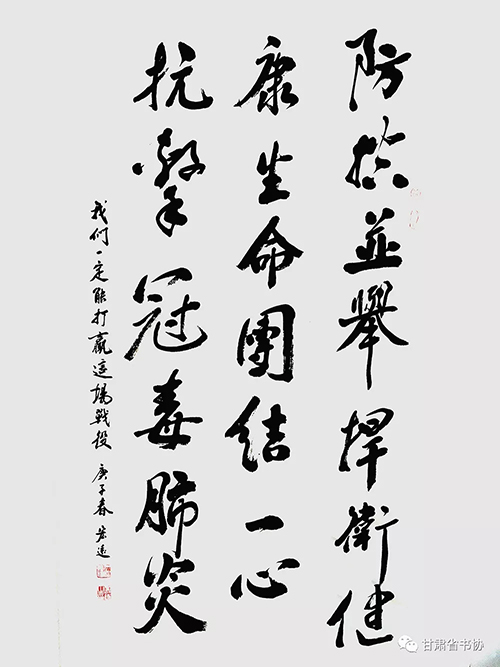 防控並舉捍衛健
康生命團结一心
抗擊冠毒肺炎
我们一定能打赢这場戰役 庚子春
甘肃省书协